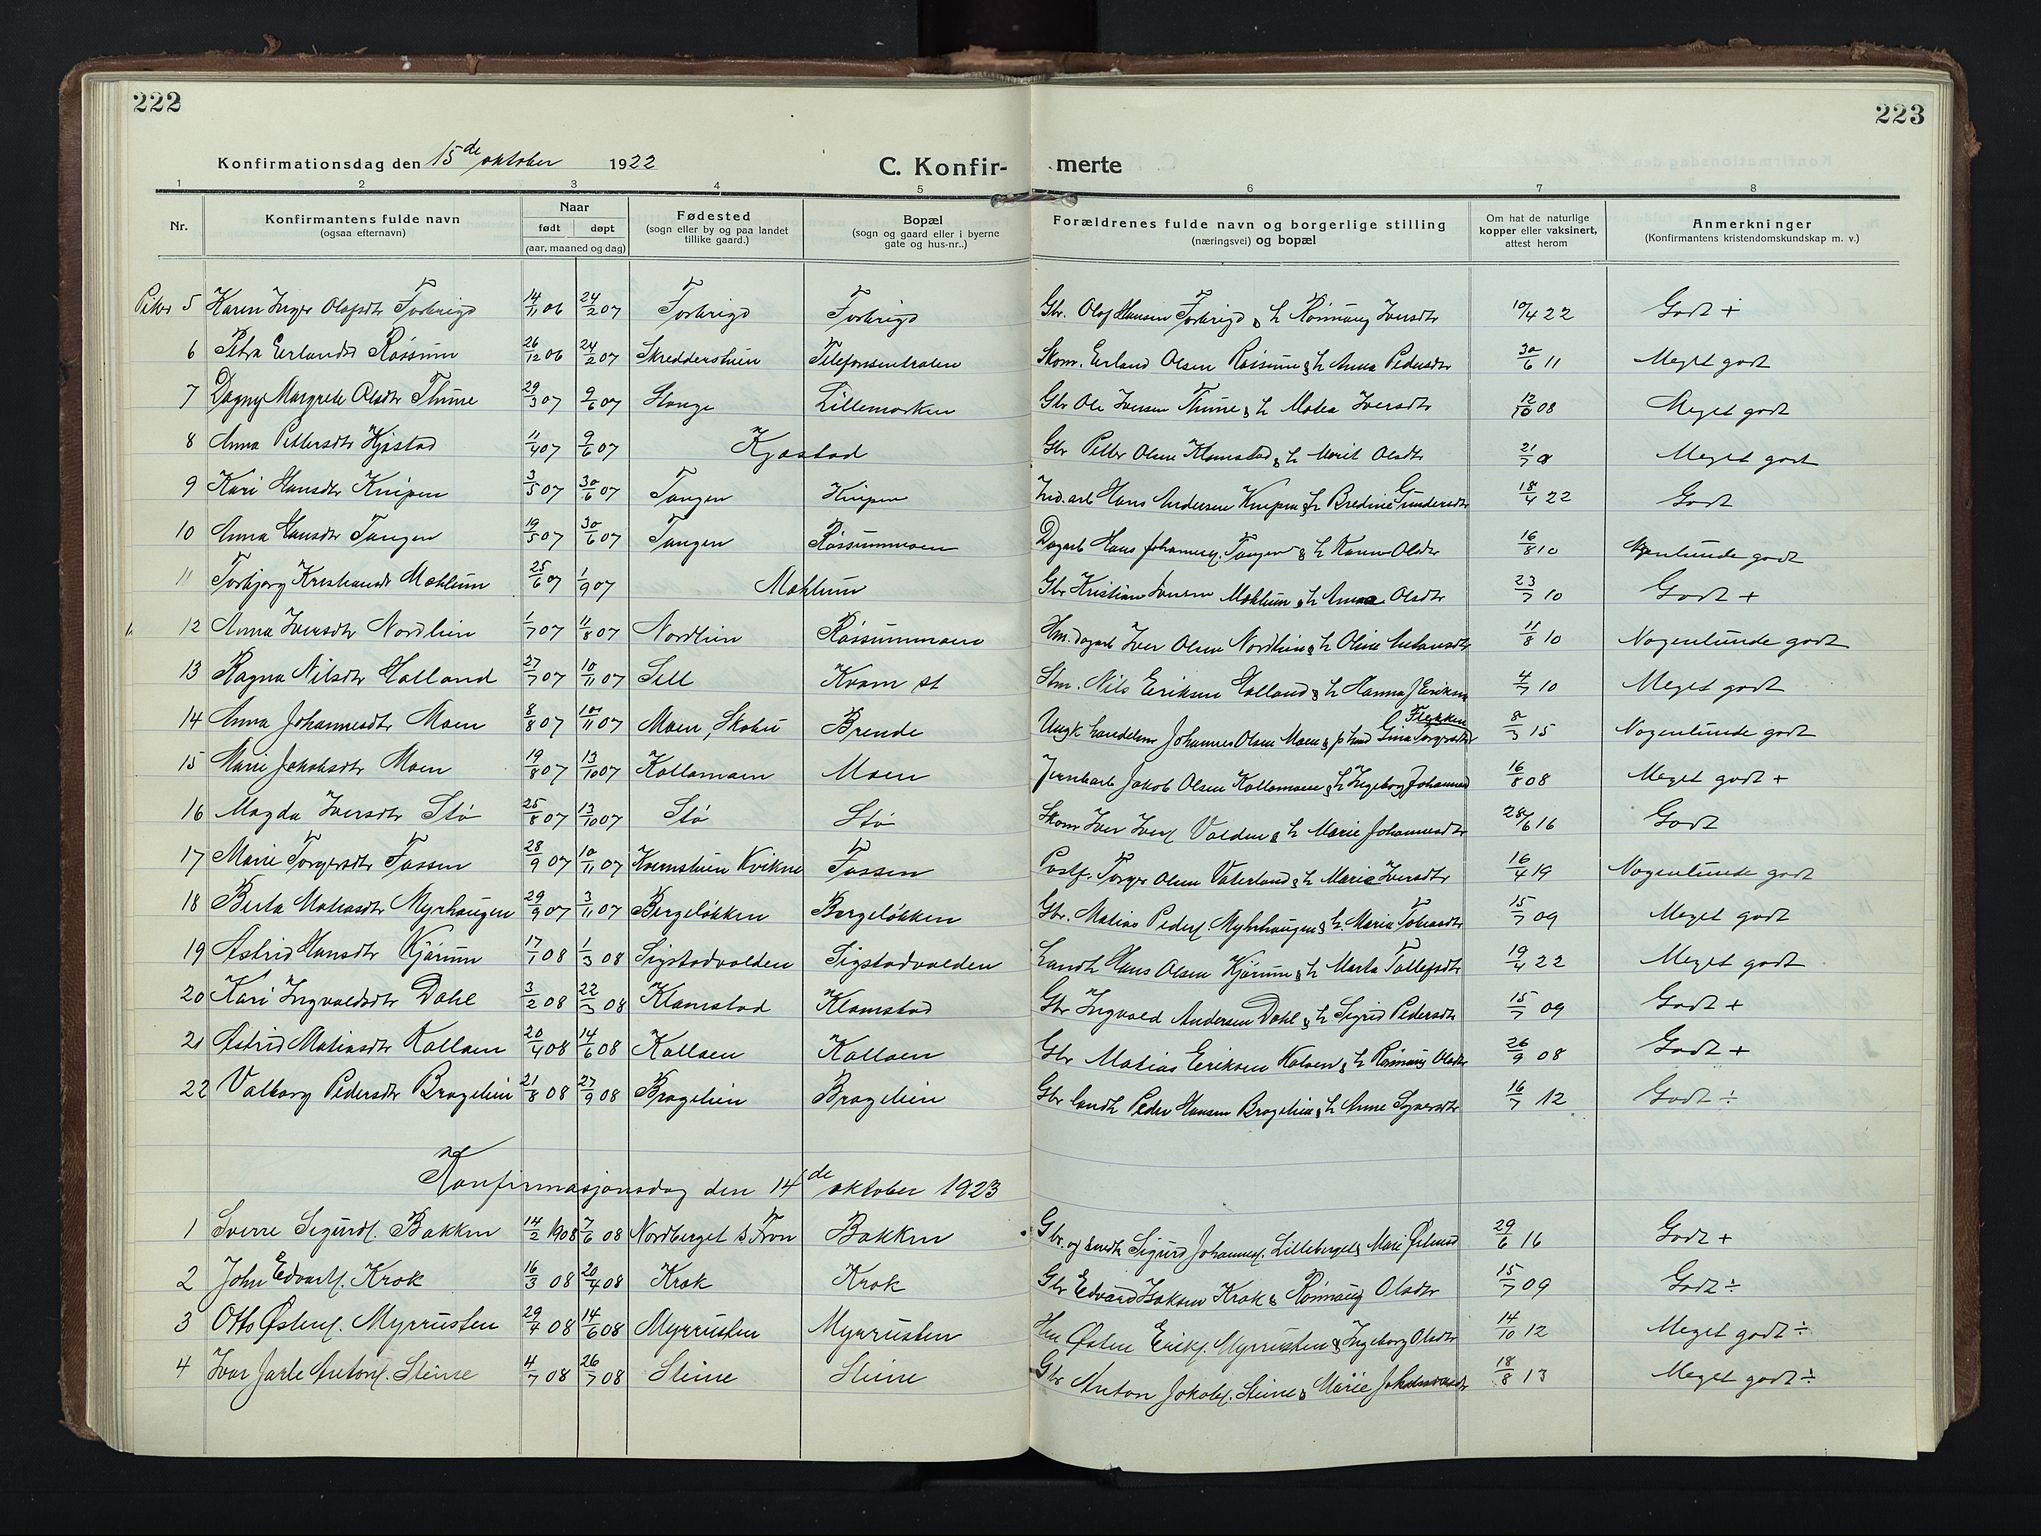 222
223
Konfirmationsdag den 15de oktober 1922
C. Konfir- merte
1 2 3 4 5 6 7 8
Nr. Konfirmantens fulde navn (ogsaa efternavn) Naar født døpt (aar, maaned og dag) Fødested (sogn eller by og paa landet tillike gaard.) Bopæl (sogn og gaard eller i byerne gate og hus-nr..) Forældrenes fulde navn og borgerlige stilling (næringsvei) og bopæl Om hat de naturlige kopper eller vaksinert, attest herom Anmerkninger (Konfirmantens kristendomskundskap m. v.)
Piker 5 Karen Inger Olafsdtr Forbrigd 14/11 06 24/2 07 Forbrigd Forbrigd Gbr. Olaf Hansen Forbrigd & h Rønnaug Iversdtr 10/4 22 Godt +
6 Petra Erlandsd Røssum 26/12 06 24/2 07 Skredderstuen Telefonsentralen Skom. Erland Olsen Røssum & h Anna Pedersdtr 30/6 11 Meget godt
7 Dagny Margrete Olsdtr Thune 29/3 07 9/6 07 Stange Lillemorken Gbr Ole Iversen Thune & h Matea Iversdtr 12/10 08 Meget godt
8 Anna Pettersdtr Kjøstad 11/4 07 9/6 07 Kjøstad Gbr Petter Olsen Klomstad & h Marit Olsdtr 21/7 Meget godt
9 Kari Hansdtr Knipen 3/5 07 30/6 07 Tangen Knipen Ind.arb Hans Andersen Knipen & h Bredine Gundersdtr 18/4 22 Godt
10 Anna Hansdtr Tangen 19/5 07 30/6 07 Tangen Røssummoen Dagarb Hans Johannes. Tangen & h Karen Olsdtr 16/8 10 Nogenlunde godt
11 Torbjørg Kristiansdt Mæhlum 25/6 07 1/9 07 Mæhlum Gbr Kristian Iversen Mæhlum & h Anna Olsdtr 23/7 10 Godt +
12 Anna Iversdtr Nordlien 1/7 07 11/8 07 Nordlien Røssummoen Hm. dagarb Iver Olsen Nordlien & h Oline Antonsdtr 11/8 10 Nogenlunde godt
13 Ragna Nilsdtr Holland 27/7 07 10/11 07 Sell Kvam st Stm. Nils Eriksen Holland & h Hanna J Eriksen 4/7 10 Meget godt
14 Anna Johannesdtr Moen 8/8 07 10/11 07 Moen, Skabu Brende Ungk handelsm Johannes Olsen Moen & pike Gina Torgersdtr Flekken 8/3 15 Nogenlunde godt
15 Marie Jakobsdtr Moen 19/8 07 13/10 07 Kollomoen Moen Jernbarb Jakob Olsen Kollomoen & h Ingeborg Johannesd 16/8 08 Meget godt +
16 Magda Iversdtr Stø 25/8 07 13/10 07 Stø Stø Skom Iver Ivers. Volden & h Marie Johannesdtr 28/6 16 Godt
17 Marie Torgersdtr Fossen 28/9 07 10/11 07 Kvernstuen Kvikne Fossen Postf. Torger Olsen Vaterland & h Marie Iversdtr 16/4 19 Nogenlunde godt
18 Berta Matiasdtr Myrhaugen 29/9 07 3/11 07 Bergeløkken Bergeløkken Gbr. Matias Peders. Myhrhaugen & h Marie Tobiasdtr 15/7 09 Meget godt
19 Astrid Hansdtr Kjørum 17/1 08 1/3 08 Sigstadvolden Sigstadvolden Landh Hans Olsen Kjørum & h Marta Tollefsdtr 19/4 22 Meget godt
20 Kari Ingvaldsdtr Dahl 3/2 08 22/3 08 Klomstad Klomstad Gbr Ingvald Andersen Dahl & h Sigrid Pedersdtr 15/7 09 Godt +
21 Astrid Matiasdtr Kolloen 20/4 08 14/6 08 Kolloen Kolloen Gbr Matias Eriksen Koloen & h Rønnaug Olsdtr 26/9 08 Godt +
22 Valborg Pedersdtr Bragelien 21/8 08 27/9 08 Bragelien Bragelien Gbr landh Peder Hansen Bragelien & h Anne Syversdtr 16/7 12 Godt ÷
Konfirmasjonsdag den 14de oktober 1923
1 Sverre Sigurds. Bakken 14/2 1908 7/6 08 Nordberget s. Fron Bakken Gbr. og smedh Sigurd Johannes. Lilleberget & Mari Østensd 29/6 16 Godt +
2 John Edvarts. Krok 16/3 08 20/4 08 Krok Krok Gbr Edvard Isaksen Krok & Rønnaug Olsdtr 15/7 09 Godt ÷
3 Otto Østens. Myrrusten 29/4 08 14/6 08 Myrrusten Myrrusten Hm Østen Eriks. Myrrusten & Ingeborg Olsdtr 14/10 12 Meget godt ÷
4 Ivar Jarle Antons. Steine 4/7 08 26/7 08 Steine Steine Gbr Anton Jakobs. Steine & Marie Johannesdt 18/8 13 Meget godt ÷